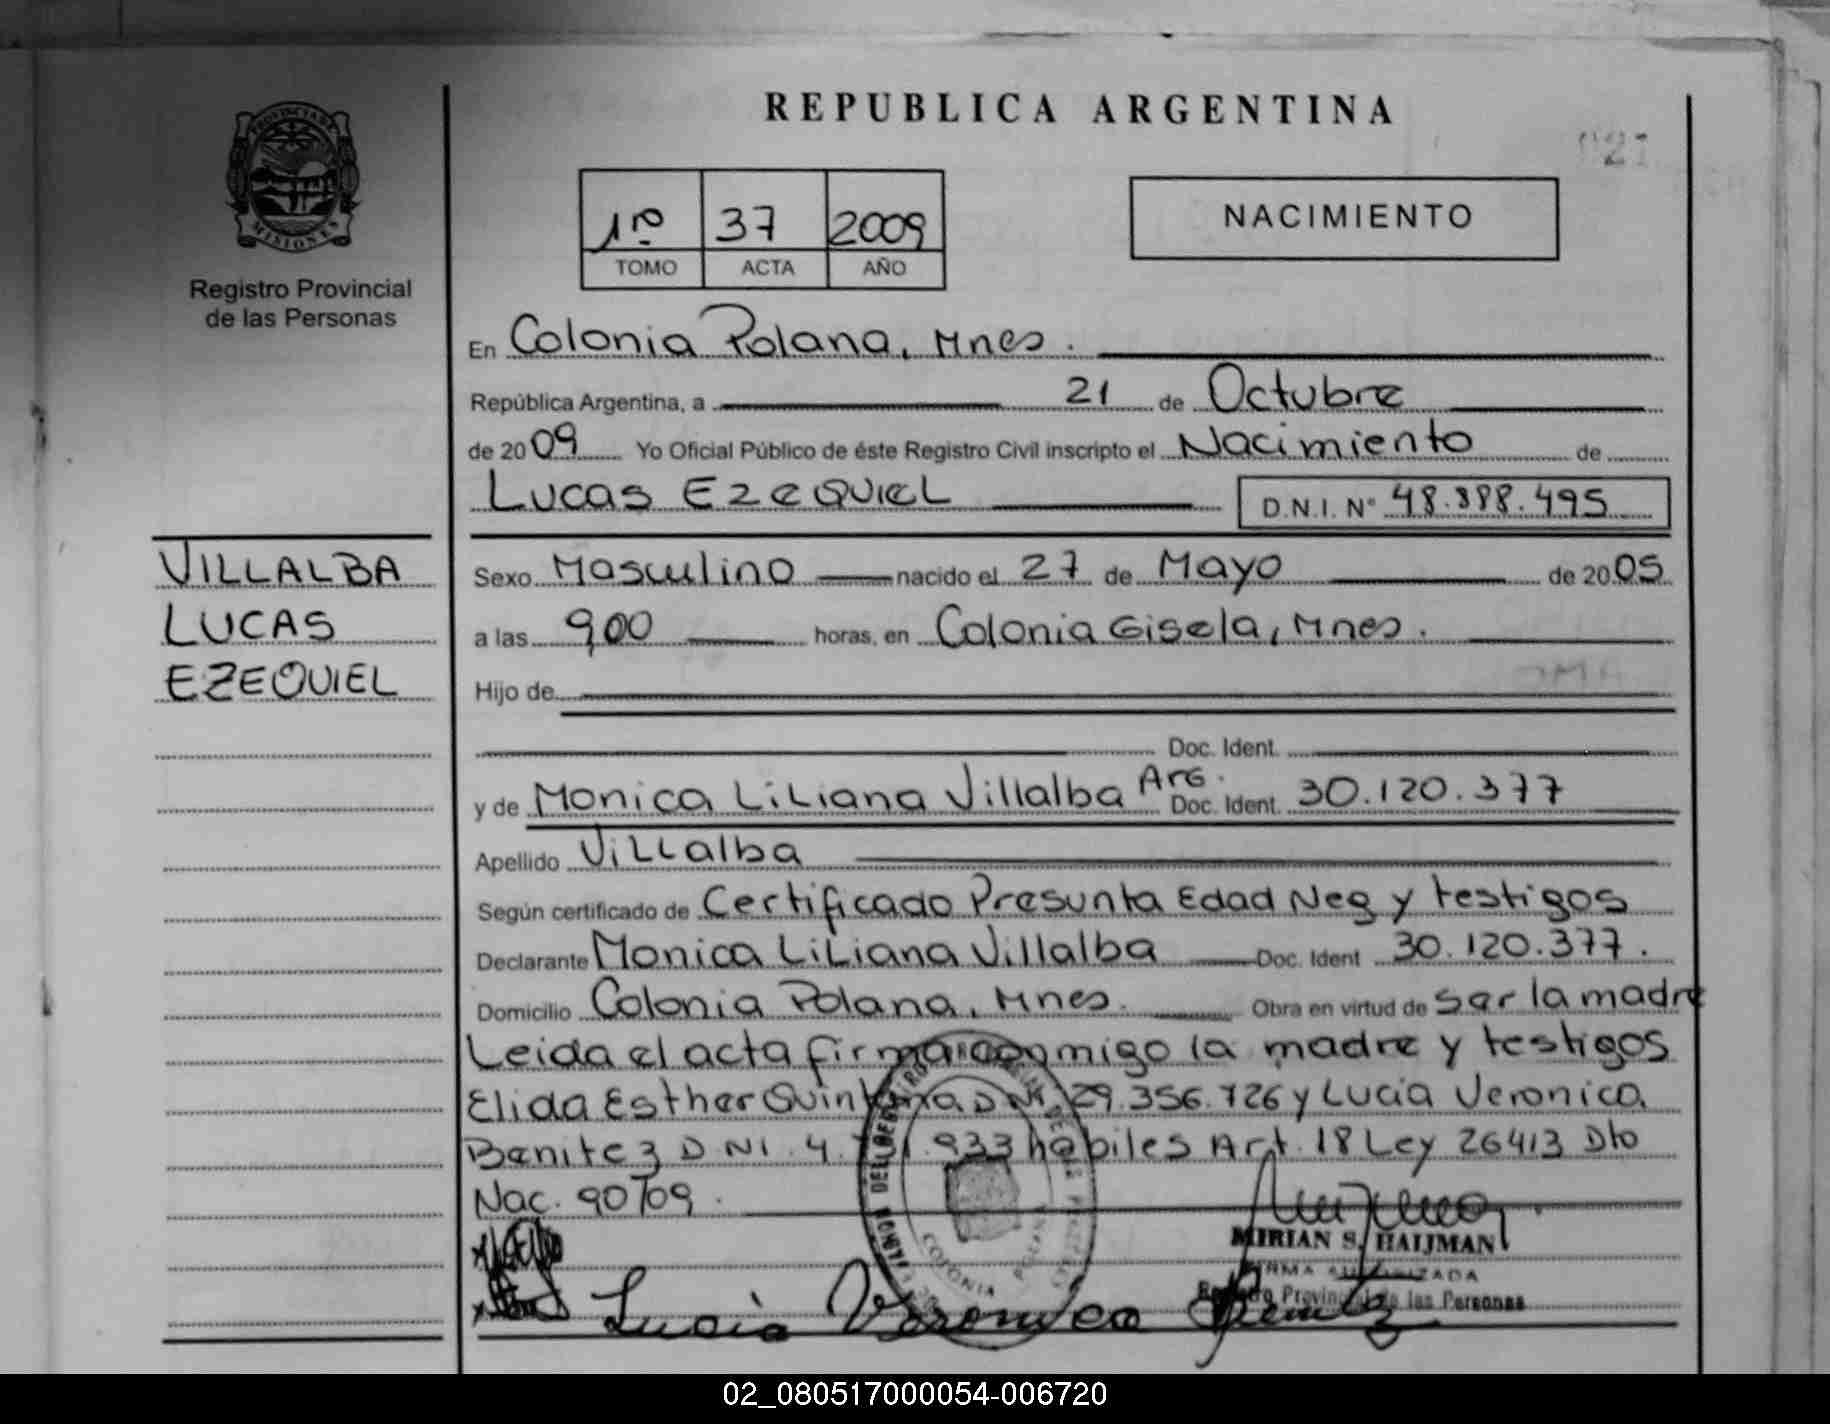 REPUBLICA ARGENTINA
PROVINCIA DE
MISIONES
Registro Provincial
de las Personas
1ro 37 2009
TOMO ACTA AÑO
NACIMIENTO
En Colonia Polana, Mnes.
República Argentina, a 21 de Octubre
de 2009 Yo Oficial Público de éste Registro Civil inscripto el Nacimiento de
Lucas Ezequiel D.N.I. Nº 48.388.495
VILLALBA
LUCAS
EZEQUIEL
Sexo Masculino nacido el 27 de Mayo de 2005
a las 9,00 horas, en Colonia Gisela, Mnes.
Hijo de
Doc. Ident.
y de Monica Liliana Villalba Arg. Doc. Ident. 30.120.377
Apellido Villalba
Según certificado de Certificado Presunta Edad Neg y testigos
Declarante Monica Liliana Villalba Doc. Ident 30.120.377.
Domicilio Colonia Polana, Mnes. Obra en virtud de ser la madre
Leida el acta firma conmigo la madre y testigos
Elida Esther Quintana DNI 29.356.726 y Lucia Veronica
Benitez DNI. 4. 933 habiles Art. 18 Ley 26413 Dto
Nac. 90709.
COLONIA POLANA
MIRIAN S. HAIJMAN
FIRMA AUTORIZADA
Registro Provincial de las Personas
Lucia Veronica Benitez
02_080517000054-006720